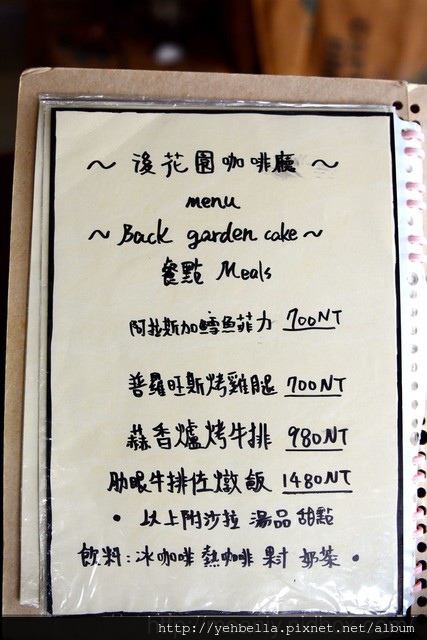 ~ 後花園咖啡廳 ~
menu
~ Back garden cake ~
餐點 Meals
阿拉斯加鱈魚菲力 700NT
普羅旺斯烤雞腿 700NT
蒜香爐烤牛排 980NT
肋眼牛排佐燉飯 1480NT
• 以上附沙拉 湯品 甜點
飲料:冰咖啡 熱咖啡 果汁 奶茶 •
http://yehbella.pixnet.net/album